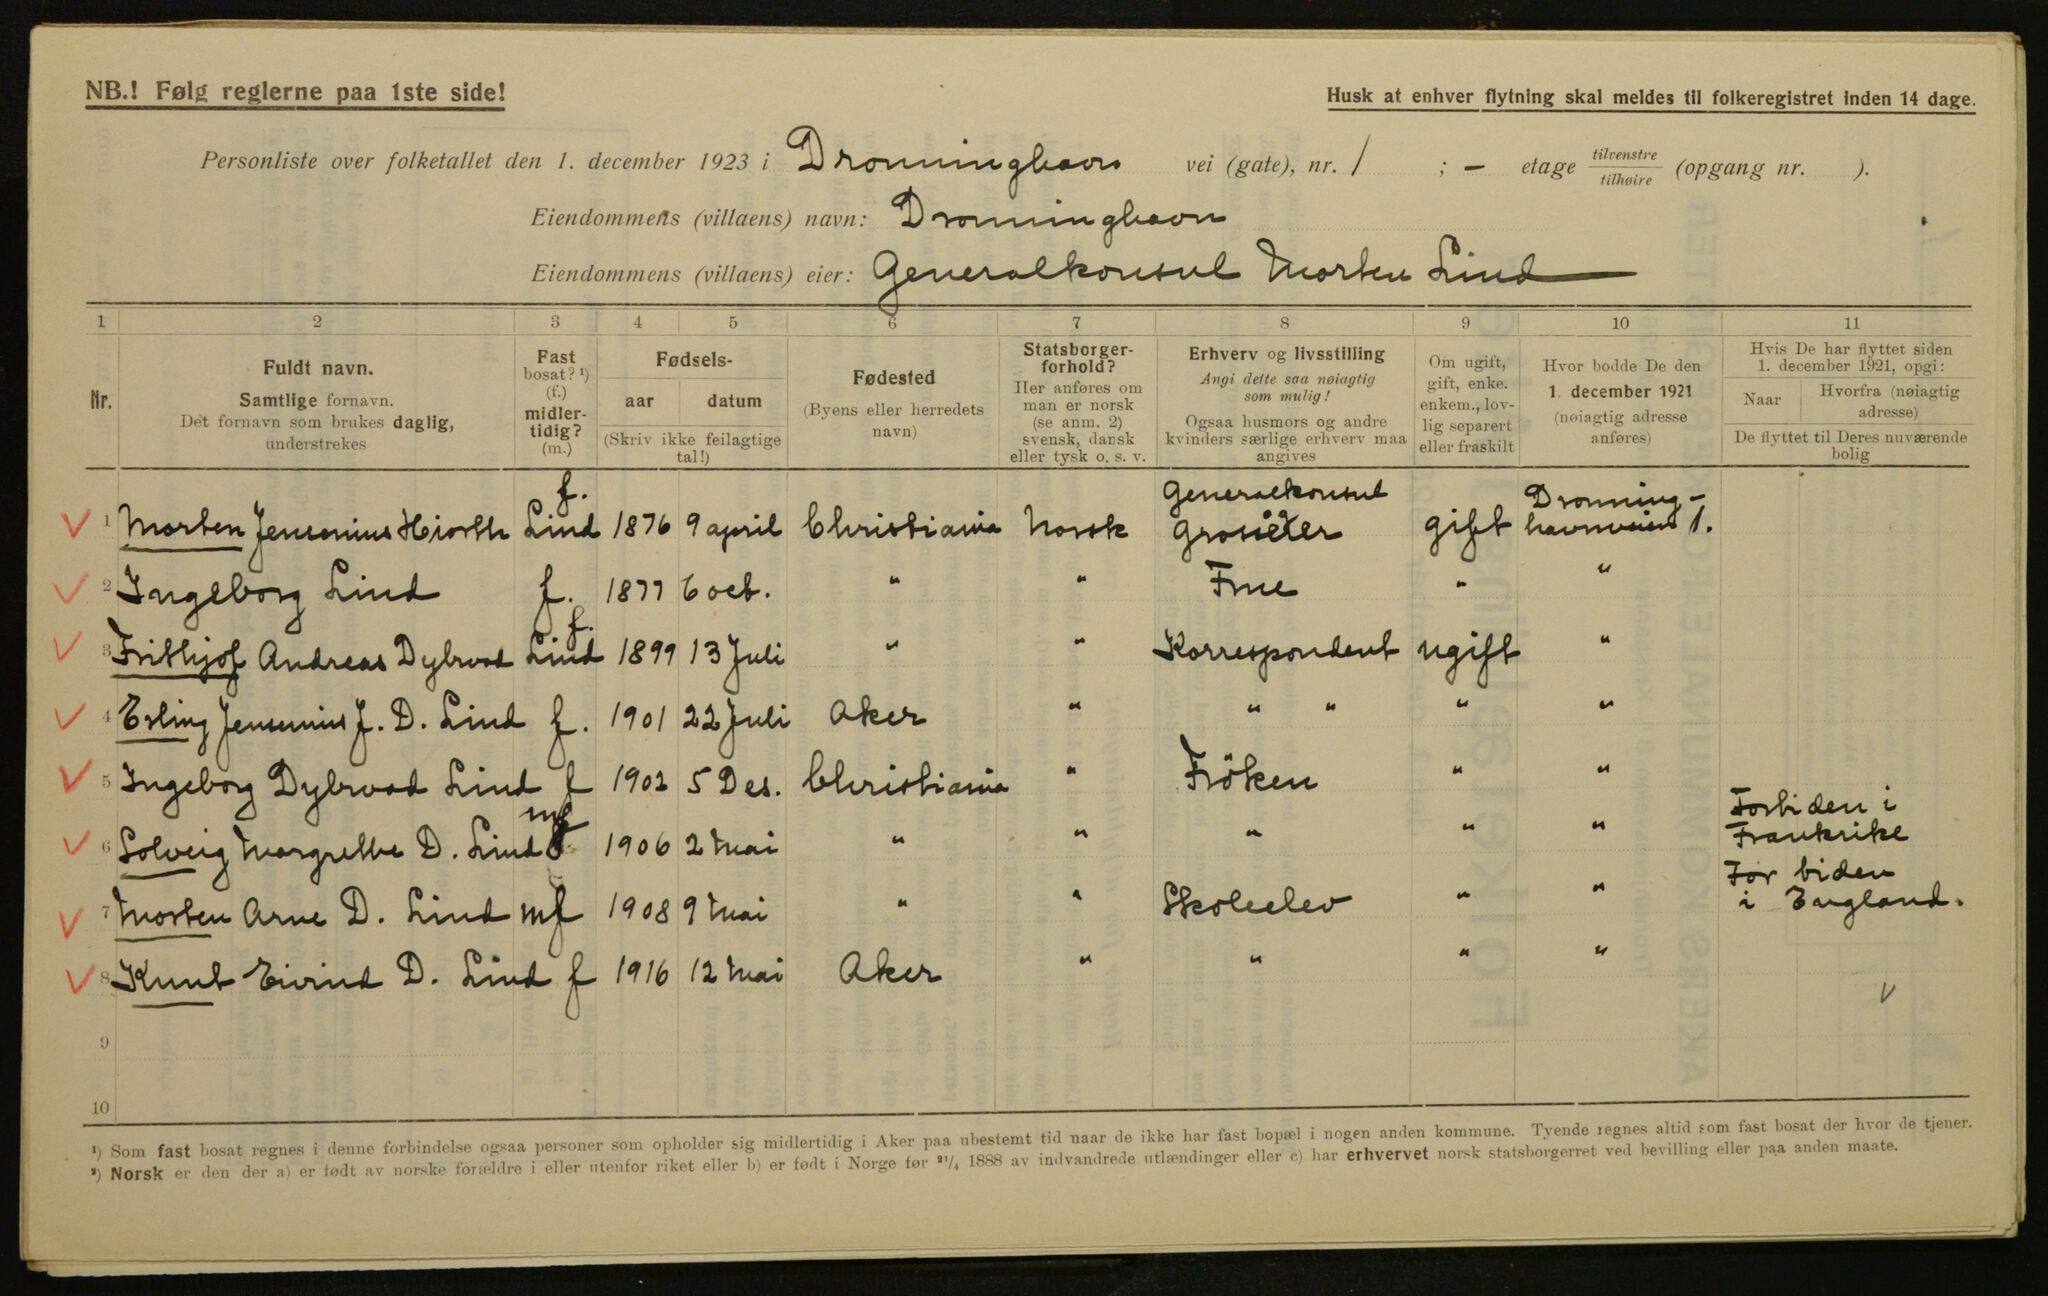 NB.! Følg reglerne paa 1ste side!
Husk at enhver flytning skal meldes til folkeregistret inden 14 dage.
Personliste over folketallet den 1. december 1923 i Dronninghavn vei (gate), nr. 1 ; – etage tilvenstre/tilhøire (opgang nr. ).
Eiendommens (villaens) navn: Dronninghavn
Eiendommens (villaens) eier: Generalkonsul Morten Lind
1 2 3 4 5 6 7 8 9 10 11
Nr.
Fuldt navn.
Samtlige fornavn.
Det fornavn som brukes daglig,
understrekes
Fast
bosat? ¹)
(f.)
midler-
tidig?
(m.)
Fødsels-
aar datum
(Skriv ikke feilagtige
tal!)
Fødested
(Byens eller herredets
navn)
Statsborger-
forhold?
Her anføres om
man er norsk
(se anm. 2)
svensk, dansk
eller tysk o. s. v.
Erhverv og livsstilling
Angi dette saa nøiagtig
som mulig!
Ogsaa husmors og andre
kvinders særlige erhverv maa
angives
Om ugift,
gift, enke.
enkem., lov-
lig separert
eller fraskilt
Hvor bodde De den
1. december 1921
(nøiagtig adresse
anføres)
Hvis De har flyttet siden
1. december 1921, opgi:
Naar
Hvorfra (nøiagtig
adresse)
De flyttet til Deres nuværende
bolig
1 Morten Jensenius Hiorth Lind f. 1876 9 april Christiania Norsk Generalkonsul Grosserer gift Dronning-havnveien 1.
2 Ingeborg Lind f. 1877 6 oct. " " Frue " "
3 Frithjof Andreas Dybwad Lind f. 1899 13 Juli " " Korrespondent ugift "
4 Erling Jensenius J. D. Lind f. 1901 22 Juli Aker " " " " "
5 Ingeborg Dybwad Lind f 1902 5 Des. Christiania " Fröken " "
6 Solveig Margrethe D. Lind mf 1906 2 Mai " " " " " For tiden i Frankrike
7 Morten Arne D. Lind mf 1908 9 Mai " " Skoleelev " " For tiden i England.
8 Knut Eivind D. Lind f 1916 12 Mai Aker " " " "
9
10
¹) Som fast bosat regnes i denne forbindelse ogsaa personer som opholder sig midlertidig i Aker paa ubestemt tid naar de ikke har fast bopæl i nogen anden kommune. Tyende regnes altid som fast bosat der hvor de tjener.
²) Norsk er den der a) er født av norske forældre i eller utenfor riket eller b) er født i Norge før ²¹/₄ 1888 av indvandrede utlændinger eller c) har erhvervet norsk statsborgerret ved bevilling eller paa anden maate.